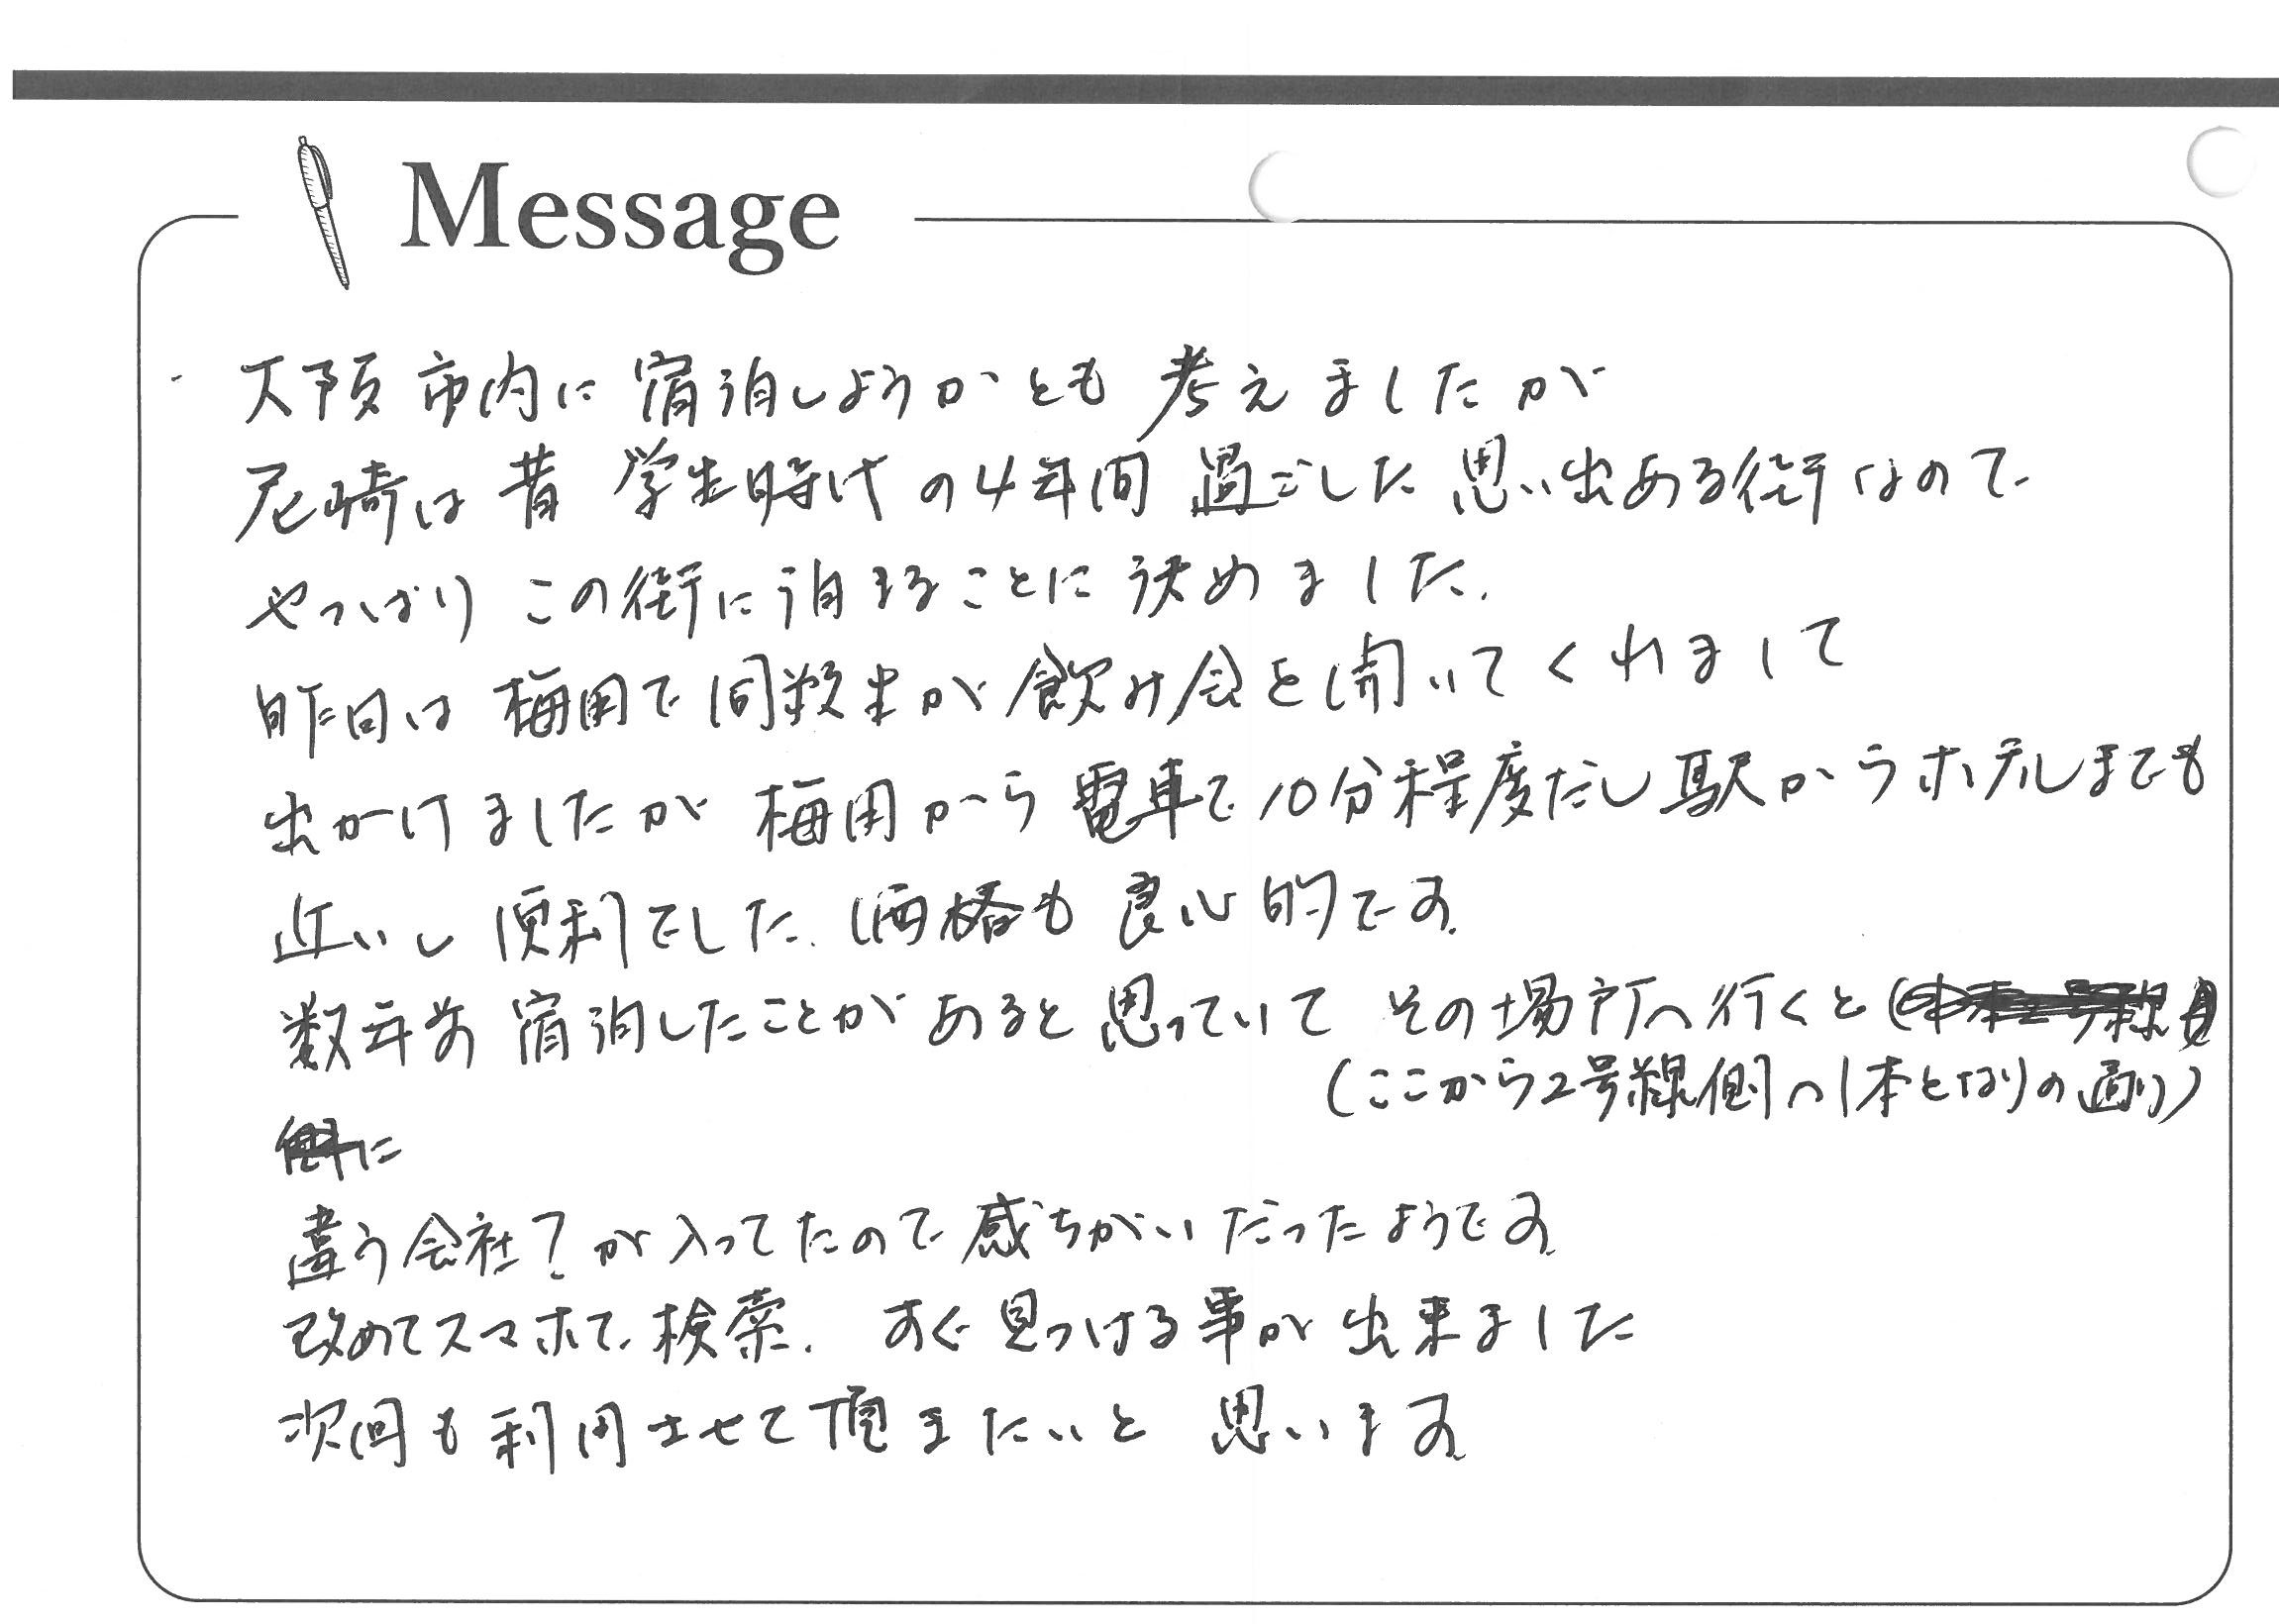 Message
大阪市内に宿泊しようかとも考えましたが
尼崎は昔学生時代の4年間過ごした思い出ある街なので
やっぱりこの街に泊まることに決めました.
昨日は梅田で同級生が飲み会を開いてくれまして
出かけましたが梅田から電車で10分程度だし駅からホテルまでも
近いし便利でした.価格も良心的です.
数年前宿泊したことがあると思っていてその場所へ行くと
(ここから2号線側へ1本となりの通り)
に
違う会社?が入ってたので感ちがいだったようです.
改めてスマホで検索.すぐ見つける事が出来ました
次回も利用させて頂きたいと思います.